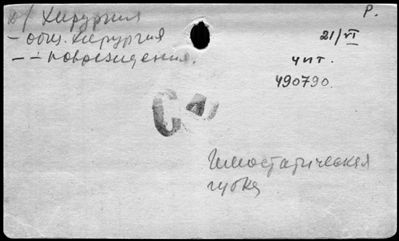 в/ Хирургия
Р.
– общ. хирургия
21/VI
– – повреждения.
чит.
490790.
Гемостатическая
губка